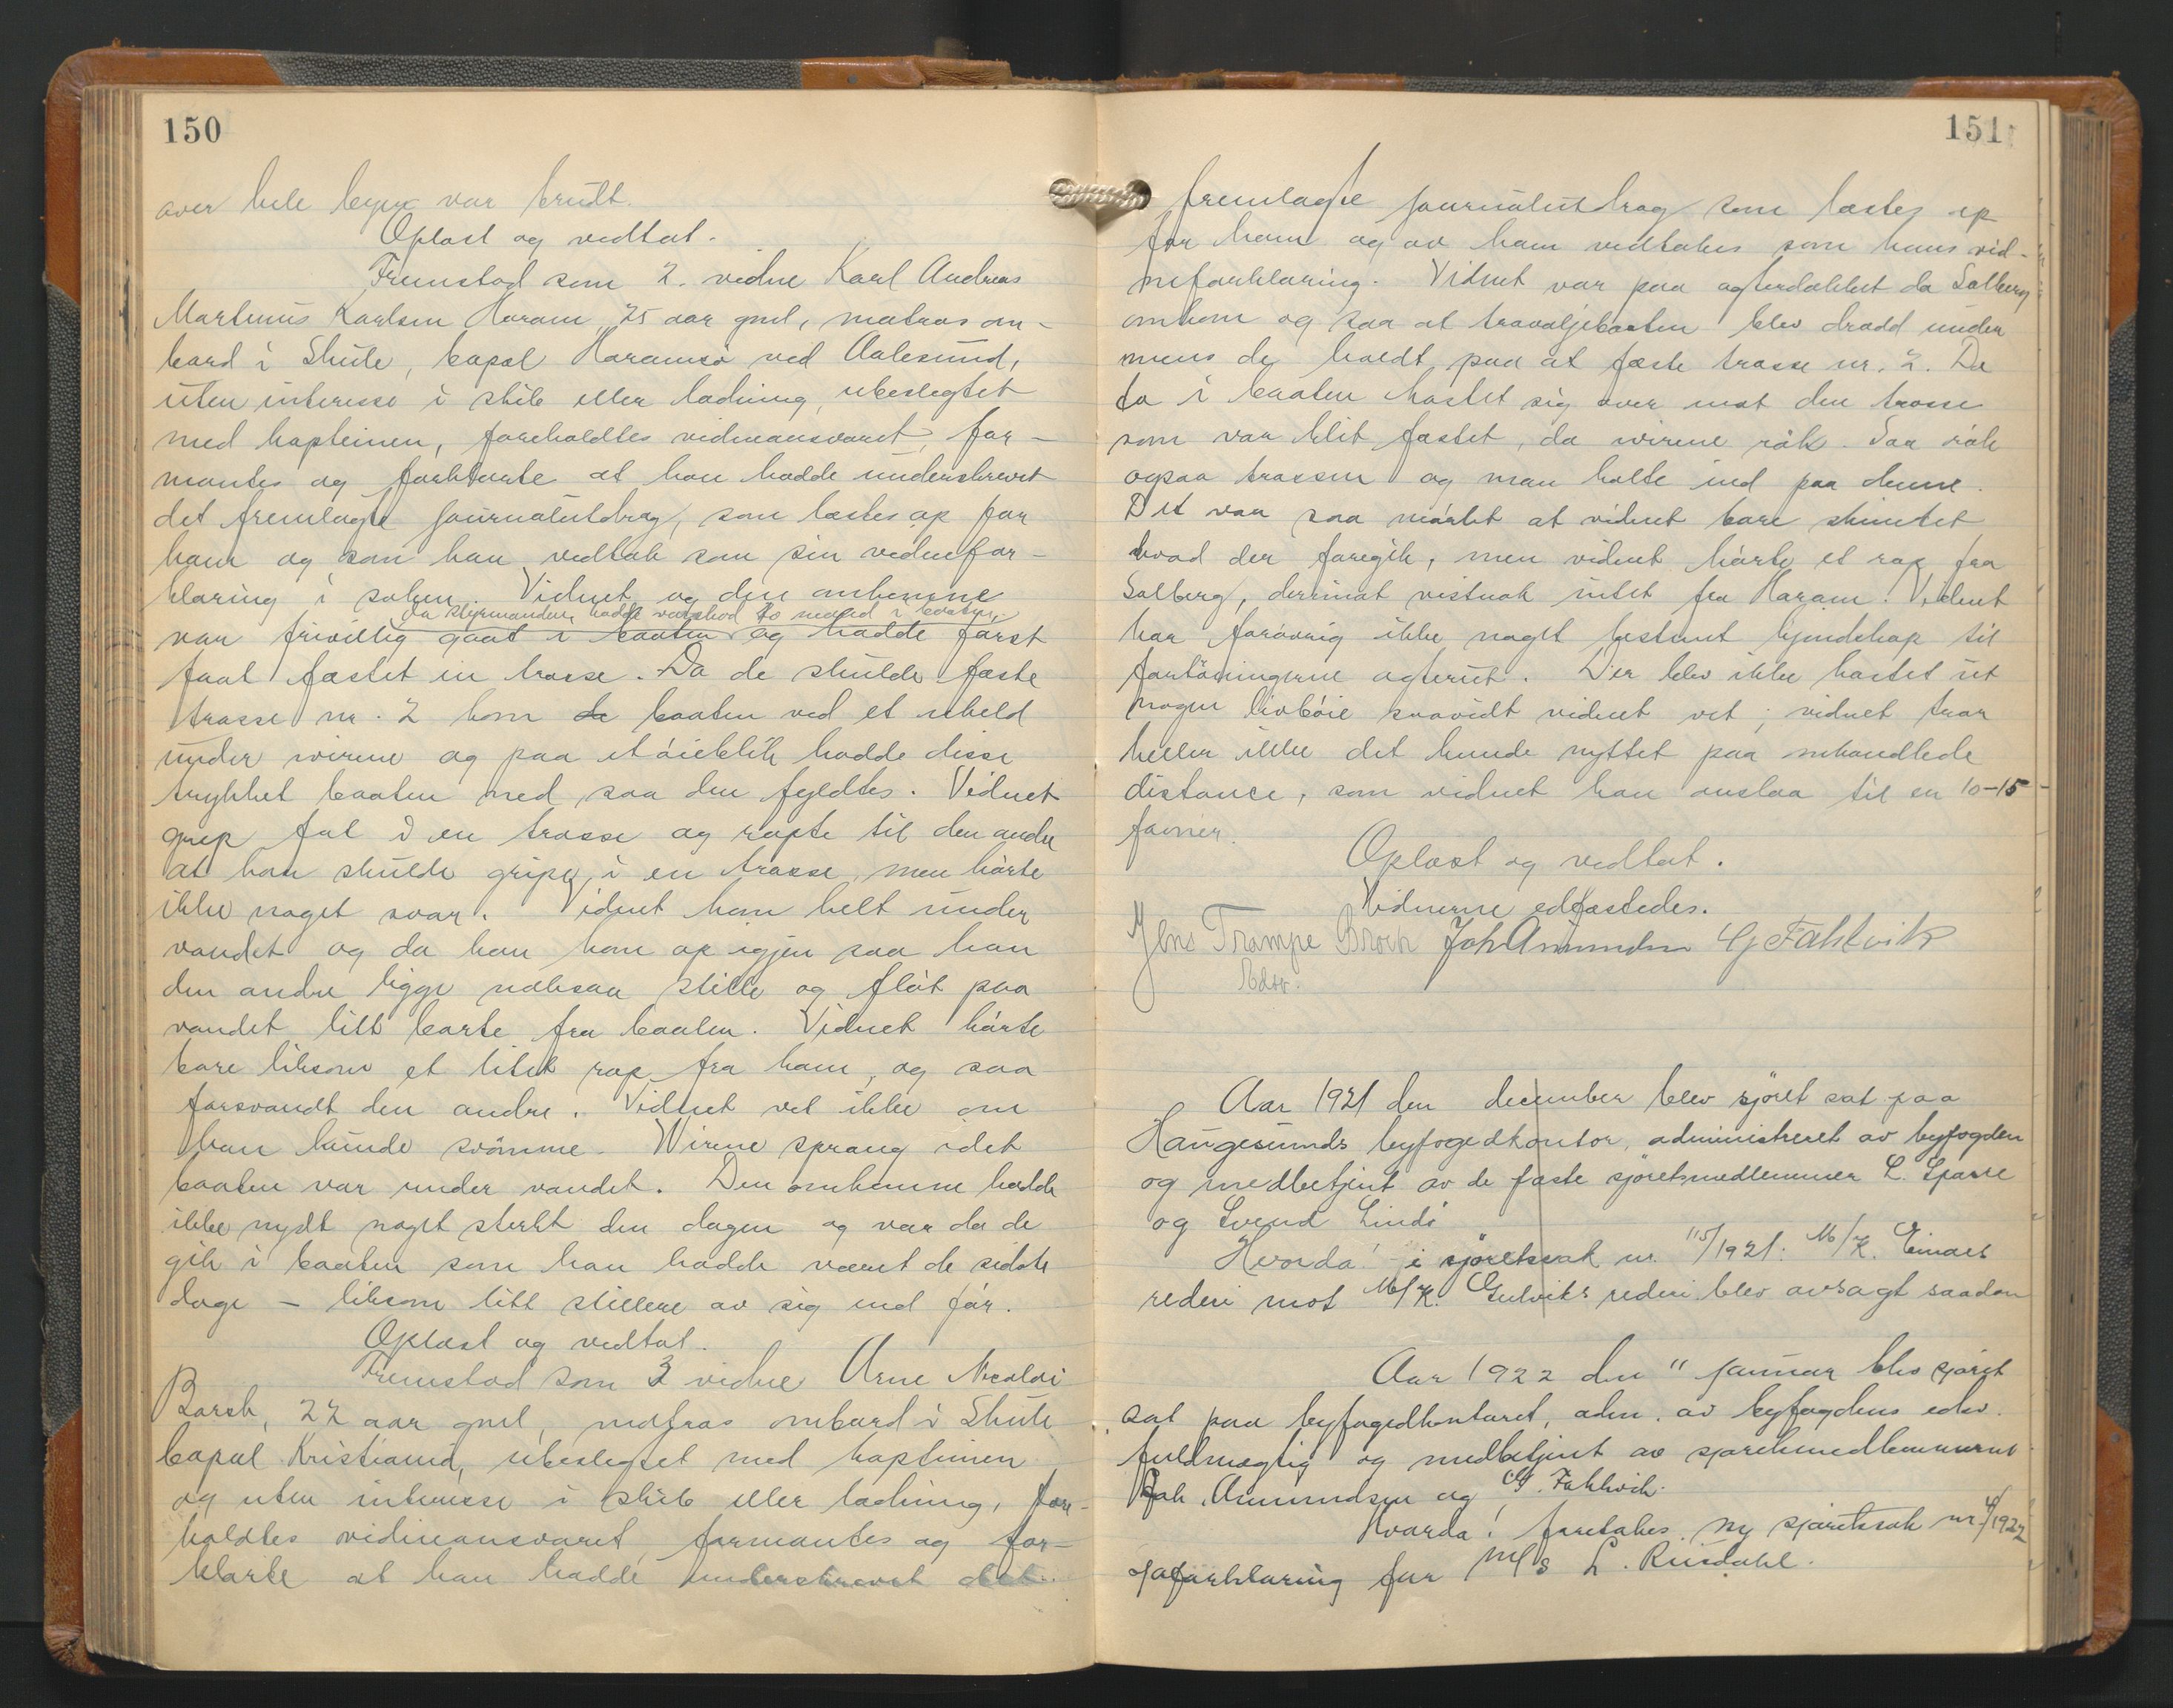 150
over hele byen var brudt.
Oplæst og vedtat.
Fremstod som 2. vidne Karl Andreas
Martinus Karlsen Haram 25 aar gml, matros om-
bord i Skule, bopæl Haramsö ved Aalesund,
uten interesse i skib eller ladning, ubeslegtet
med kapteinen, foreholdtes vidneansvaret, for-
mantes og forklarte at han hadde underskrevet
det fremlagte journalutdrag, som læstes op for
ham og som han vedtok som sin vidnefor-
klaring i saken. Vidnet og den omkomne
da styrmanden hadde varskod to mand i baaten
var frivillig gaat i baaten og hadde först
faat fæstet en trosse. Da de skulde fæste
trosse nr. 2 kom de baaten ved et uheld
under wirene og paa et öieblik hadde disse
trykket baaten ned saa den fyldtes. Vidnet
grep fat i en trosse og ropte til den andre
at han skulde gripe i en trosse, men hörte
ikke noget svar. Vidnet kom helt under
vandet og da han kom op igjen saa han
den andre ligge noksaa stille og flöt paa
vandet litt borte fra baaten. Vidnet hörte
bare liksom et litet rop fra ham, og saa
forsvandt den andre. Vidnet vet ikke om
han kunde svömme. Wirene sprang idet
baaten var under vandet. Den omkomne hadde
ikke nydt noget sterkt den dagen og var da de
gik i baaten som han hadde været de sidste
dage – liksom litt stillere av sig end för.
Oplæst og vedtat.
Fremstod som 3 vidne Arne Nicolai
Borch, 22 aar gml, matros ombord i Skule
bopæl Kristiania, ubeslegtet med kapteinen
og uten interesse i skib eller ladning, fore-
holdtes vidneansvaret, formantes og for-
klarte at han hadde underskrevet det
151
fremlagte journalutdrag som læstes op
for ham og av ham vedtokes som hans vid-
neforklaring. Vidnet var paa agterdækket da Solberg
omkom og saa at travaljebaaten blev dradd under
mens de holdt paa at fæste trosse nr. 2. De
to i baaten kastet sig over mot den trosse
som var blit fæstet, da wirene rök. Saa rök
ogsaa trossen og man halte ind paa denne.
Det var saa mörkt at vidnet bare skimtet
hvad der foregik, men vidnet hörte et rop fra
Solberg, derimot vistnok intet fra Haram. Vidnet
har forövrig ikke noget bestemt kjendskap til
fortöiningerne agterut. Der blev ikke kastet ut
nogen livböie saavidt vidnet vet; vidnet tror
heller ikke det kunde nyttet paa omhandlede
distance, som vidnet kan anslaa til en 10-15
favner.
Oplæst og vedtat.
Vidnerne edfæstedes.
Jens Trampe Broch Joh Amundsen G Fahlvik
Edsv.
Aar 1921 den december blev sjöret sat paa
Haugesunds byfogedkontor, administreret av byfogden
og medbetjent av de faste sjöretsmedlemmer L. Sparre
og Svend Lindö
Hvorda! i sjöretssak nr. 115/1921: M/K. Einars
rederi mot M/K. Gulviks rederi blev avsagt saadan
Aar 1922 den " januar blev sjöret
sat paa byfogedkontoret, adm. av byfogdens edsv.
fuldmægtig og medbetjent av sjöretsmedlemmerne
Joh. Amundsen og G. Fahlvik.
Hvorda! foretokes ny sjöretssak nr. 4/1922
sjöforklaring for M/S L. Risdahl.